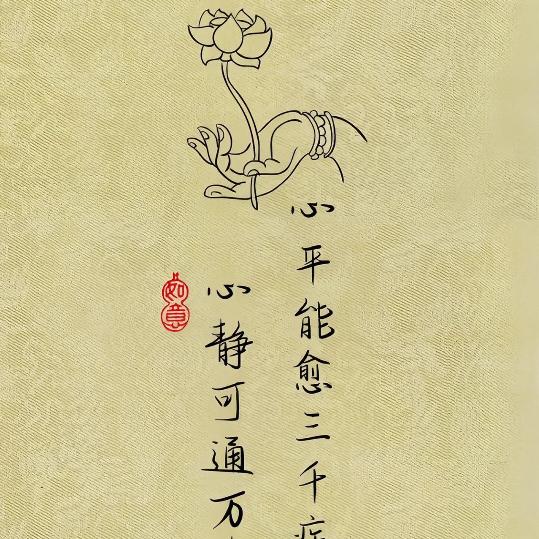 心平能愈三千疾
心静可通万
如意